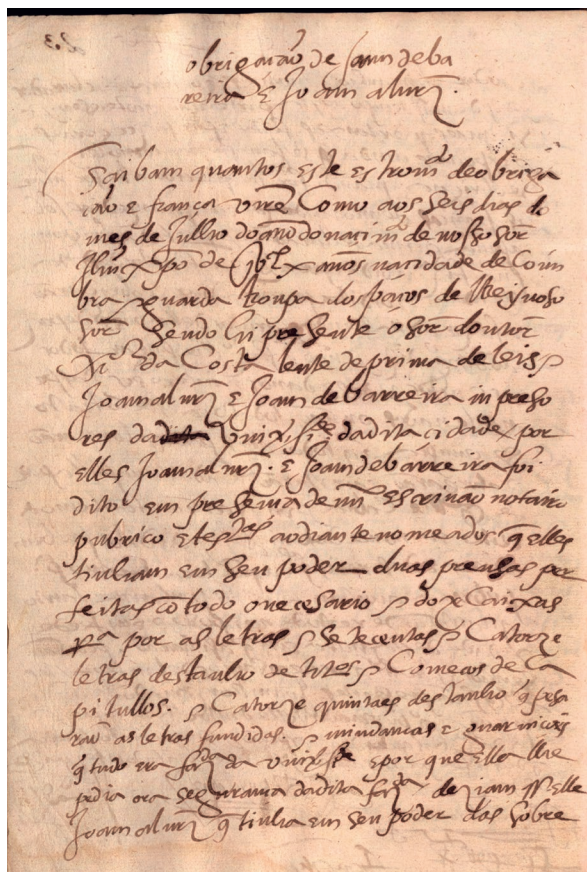 obrigação de Joam deba
reira E Joam alurz.
Saibam quantos este estromto de obriga
ção e fiança virē Como aos seis dias do
mes de Jullio do año do nacimto de nosso sor
Jhū xpo de annos na cidade de Coim
bra guarda Roupa dos paços del Rey noso
sor sendo hi presente o sor doutor
da Costa lente de prima de leis
Joam alurz E Joam de barreira impreso
res da dita cidade / por
elles Joam alurz. E Joam de barreira foi
dito em presença de mī escrivaō notairo
pubrico E tas ao diante nomeados q̄ elles
tinham em seu poder duas prensas per
feitas cō todo o necesario / doze Caixas
pa por as letras / setecentas / Catorze
letras destanho de titos / Comecos de Ca
pitullos. / Catorze quintaes destanho q̄ pesa
raō as letras fundidas. / e guarnicois
q̄ tudo era da E por que ella lhe
pedia ora segurança da dita diziam elle
Joam alurz q̄ tinha em seu poder das sobre